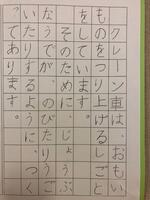 クレーン車は、おもい
ものをつり上げるしごと
をしています。
そのために、じょうぶ
なうでが、のびたりうご
いたりするように、つく
ってあります。